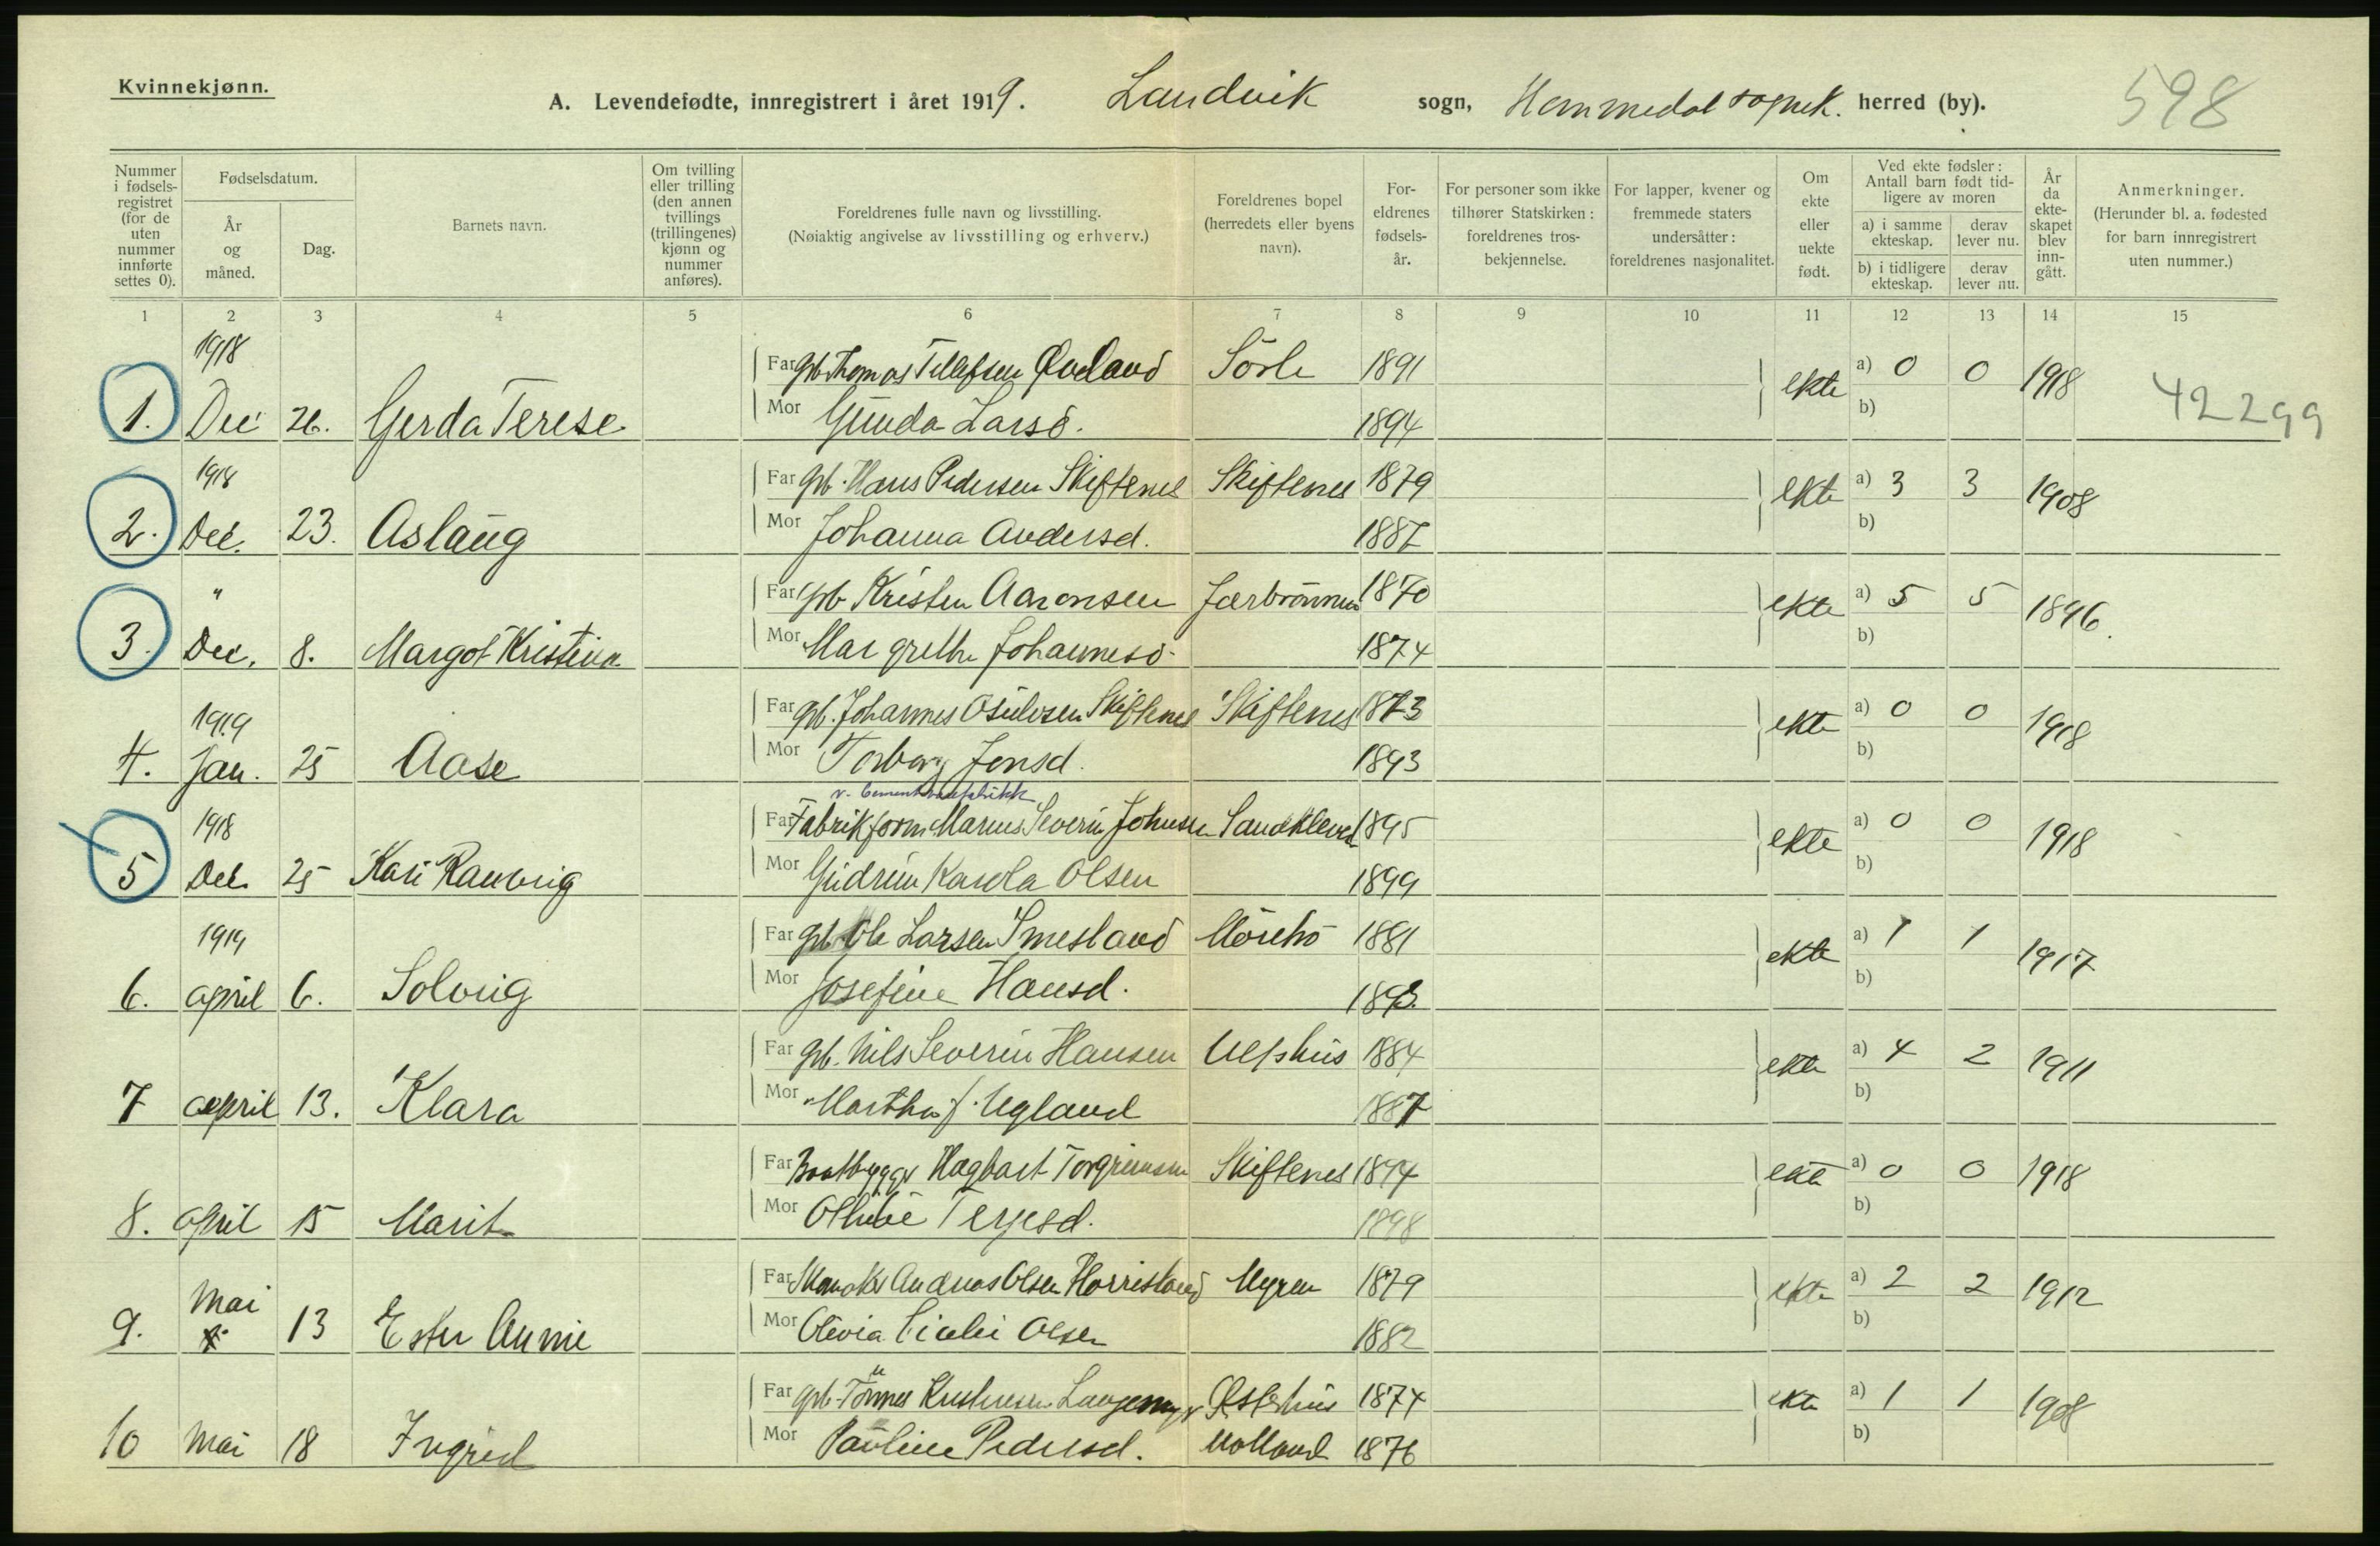 Kvinnekjønn.
A. Levendefødte, innregistrert i året 1919. Landvik sogn, herred (by). 598
Nummer i fødselsregistret (for de uten nummer innførte settes 0).
Fødselsdatum.
År og måned.
Dag.
Barnets navn.
Om tvilling eller trilling (den annen tvillings (trillingenes) kjønn og nummer anføres).
Foreldrenes fulle navn og livsstilling.
(Nøiaktig angivelse av livsstilling og erhverv.)
Foreldrenes bopel (herredets eller byens navn).
Foreldrenes fødselsår.
For personer som ikke tilhører Statskirken: foreldrenes trosbekjennelse.
For lapper, kvener og fremmede staters undersåtter: foreldrenes nasjonalitet.
Om ekte eller uekte født.
Ved ekte fødsler: Antall barn født tidligere av moren
a) i samme ekteskap. derav lever nu.
b) i tidligere ekteskap. derav lever nu.
År da ekteskapet blev inngått.
Anmerkninger.
(Herunder bl. a. fødested for barn innregistrert uten nummer.)
1 2 3 4 5 6 7 8 9 10 11 12 13 14 15
1918
Far gb. Thomas Tellefsen Øveland 1891 ekte a) 0 0 1918
1. Dec 26. Gerda Terese Mor Gunda Larsd. 1894 b) 42299
1918
Far gb. Hans Pedersen Skiftenes Skiftenes 1879 ekte a) 3 3 1908
2. Dec. 23. Aslaug Mor Johanna Andersd. 1887 b)
"
Far gb Kristen Aaronsen 1870 ekte a) 5 5 1896.
3. Dec. 8. Margot Kristina Mor Margrethe Johannesd. 1874 b)
1919
Far gb. Johannes Osulvsen Skiftenes Skiftenes 1873 ekte a) 0 0 1918
4. Jan. 25 Aase Mor Torborg Jensd. 1893 b)
v. Cementvarefabrikk
1918
Far Fabrikform. Marius Severin Johnsen 1895 ekte a) 0 0 1918
5 Dec. 25 Kari Ranveig Mor Gudrun Karola Olsen 1899 b)
1919
Far gb. Ole Larsen Smesland 1881 ekte a) 1 1 1917
6. april 6. Solveig Mor Josefine Hansd. 1893 b)
Far gb. Nils Severin Hansen 1884 ekte a) 4 2 1911
7 april 13. Klara Mor Martha J. Ugland 1887 b)
Far Baatbygger Hagbart Torgrimsen Skiftenes 1894 ekte a) 0 0 1918
8. april 15 Marit Mor Terjesd. 1898 b)
Far Andreas Olsen Myren 1879 ekte a) 2 2 1912
9. Mai 13 Ester Annie Mor Olivia Olsen 1882 b)
Far gb. Tønnes Østerhus 1874 ekte a) 1 1 1908
10 Mai 18 Ingrid Mor Pauline Pedersd. Molland 1876 b)